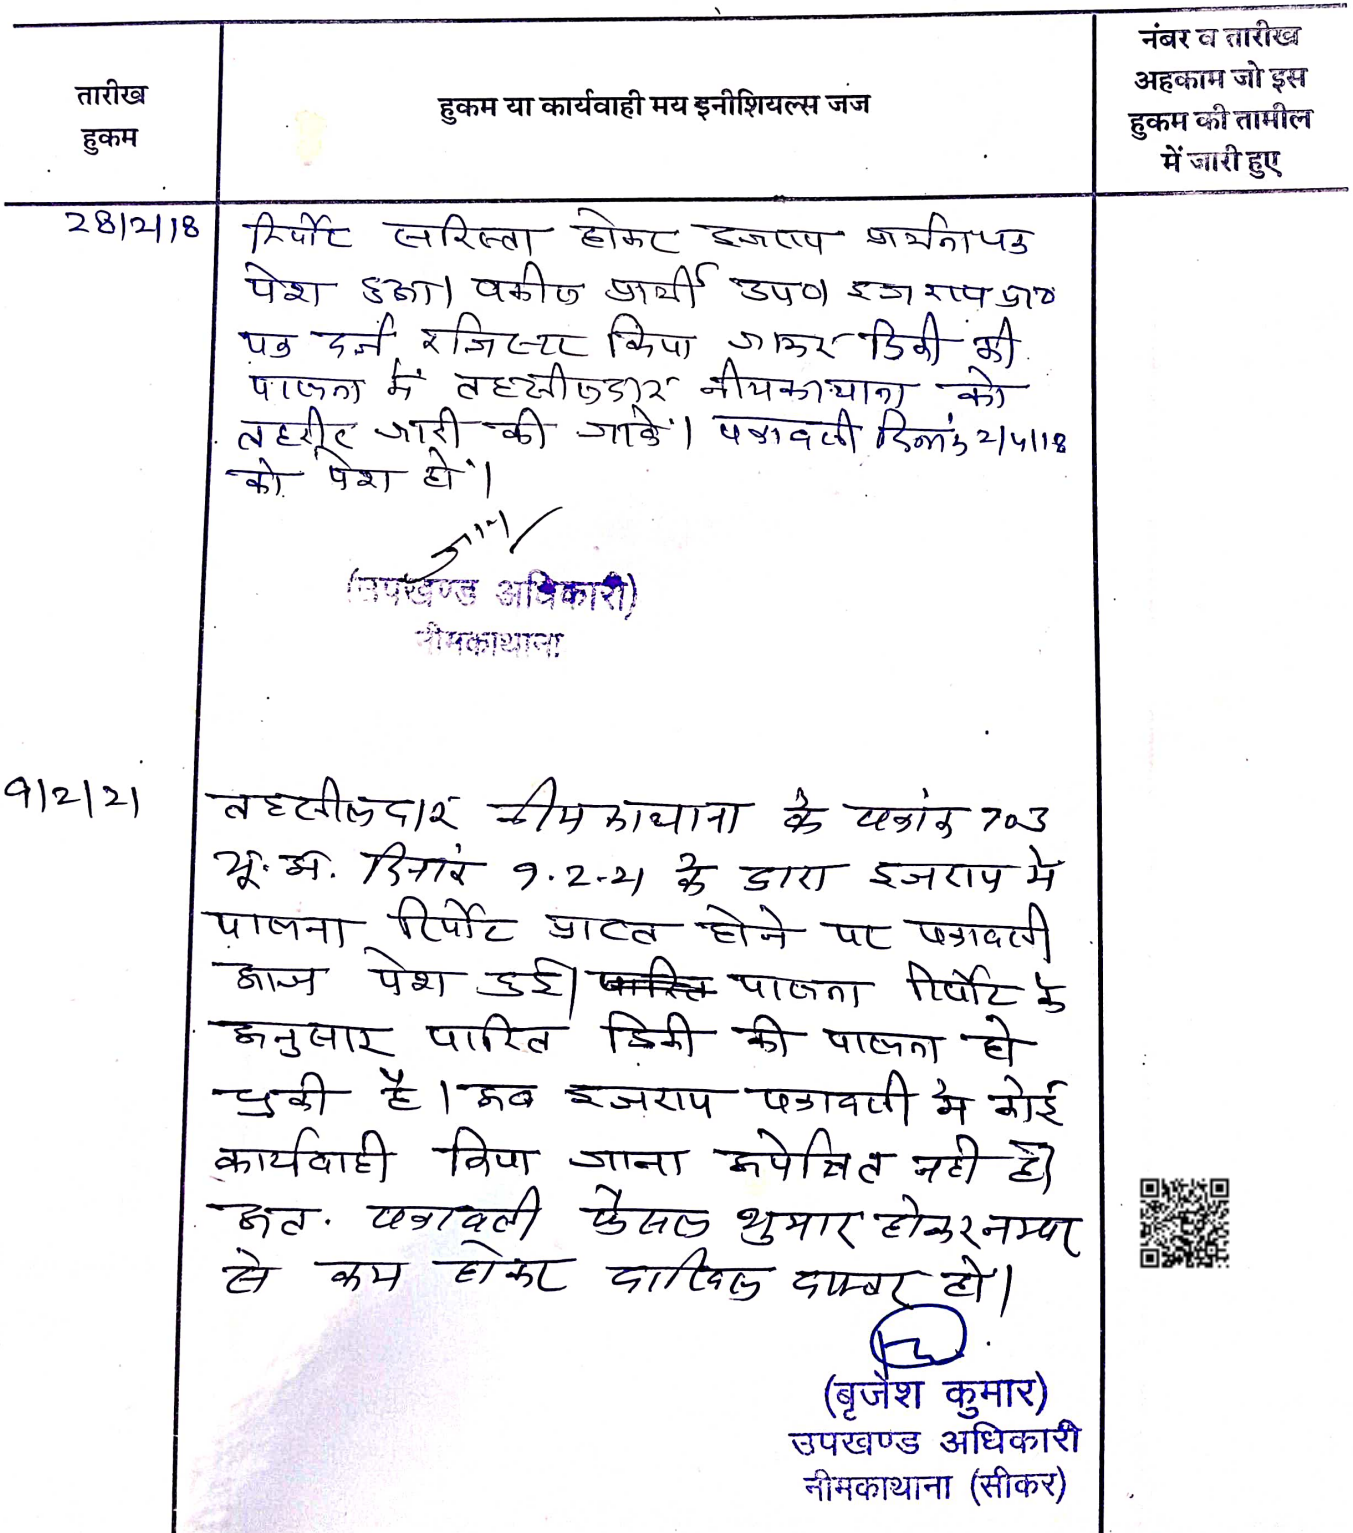 तारीख
हुकम
हुकम या कार्यवाही मय इनीशियल्स जज
नंबर व तारीख
अहकाम जो इस
हुकम की तामील
में जारी हुए
28/2/18
रिर्पोट सरिस्ता होकर इजराय प्रार्थनापत्र
पेश हुआ। वकील प्रार्थी उप० इजराय प्रा०
पत्र दर्ज रजिस्टर किया जाकर डिक्री की
पालना में तहसीलदार नीमकाथाना को
तहरीर जारी की जावे। पत्रावली दिनांक 2/4/18
को पेश हो।
(उपखण्ड अधिकारी)
नीमकाथाना
9/2/21
तहसीलदार नीमकाथाना के पत्रांक 703
भू.अ. दिनांक 9.2.21 के द्वारा इजराय में
पालना रिर्पोट प्राप्त होने पर पत्रावली
आज पेश हुई। पारित पालना रिर्पोट के
अनुसार पारित डिक्री की पालना हो
चुकी है। अब इजराय पत्रावली में कोई
कार्यवाही किया जाना अपेक्षित नही है।
अत. पत्रावली फैसल शुमार होकर नम्बर
से कम होकर दाखिल दफ्तर हो।
(बृजेश कुमार)
उपखण्ड अधिकारी
नीमकाथाना (सीकर)